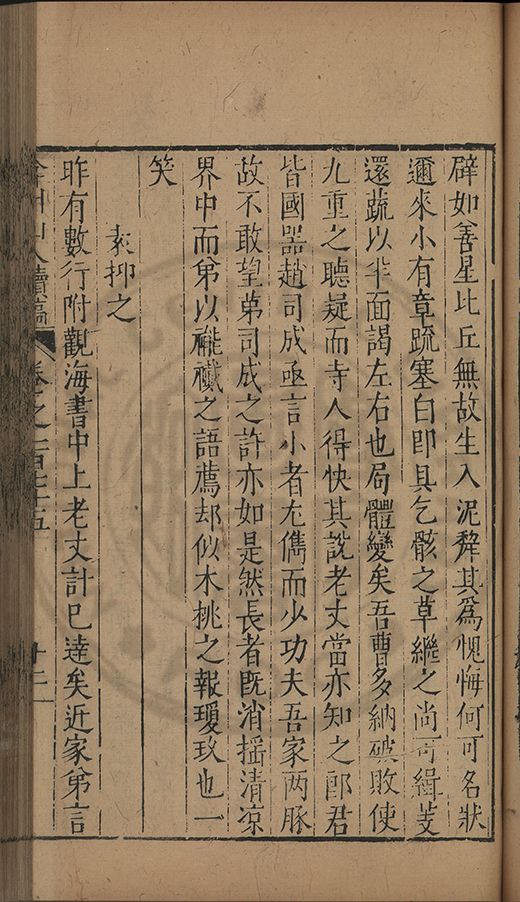 辟如善星比丘無故生入泥犂其爲愧悔何可名狀
邇來小有章疏塞白即具乞骸之草繼之尚可緝芰
還蔬以半面謁左右也局體變矣吾曹多納破敗使
九重之聽疑而寺人得快其說老丈當亦知之郎君
皆國器趙司成亟言小者尤儁而少功夫吾家两豚
故不敢望第司成之許亦如是然長者既消摇清凉
界中而弟以襹襶之語薦却似木桃之報瓊玖也一
笑
袁抑之
昨有數行附觀海書中上老丈計已達矣近家弟言
弇州山人續稿 卷之一百七十五 十二